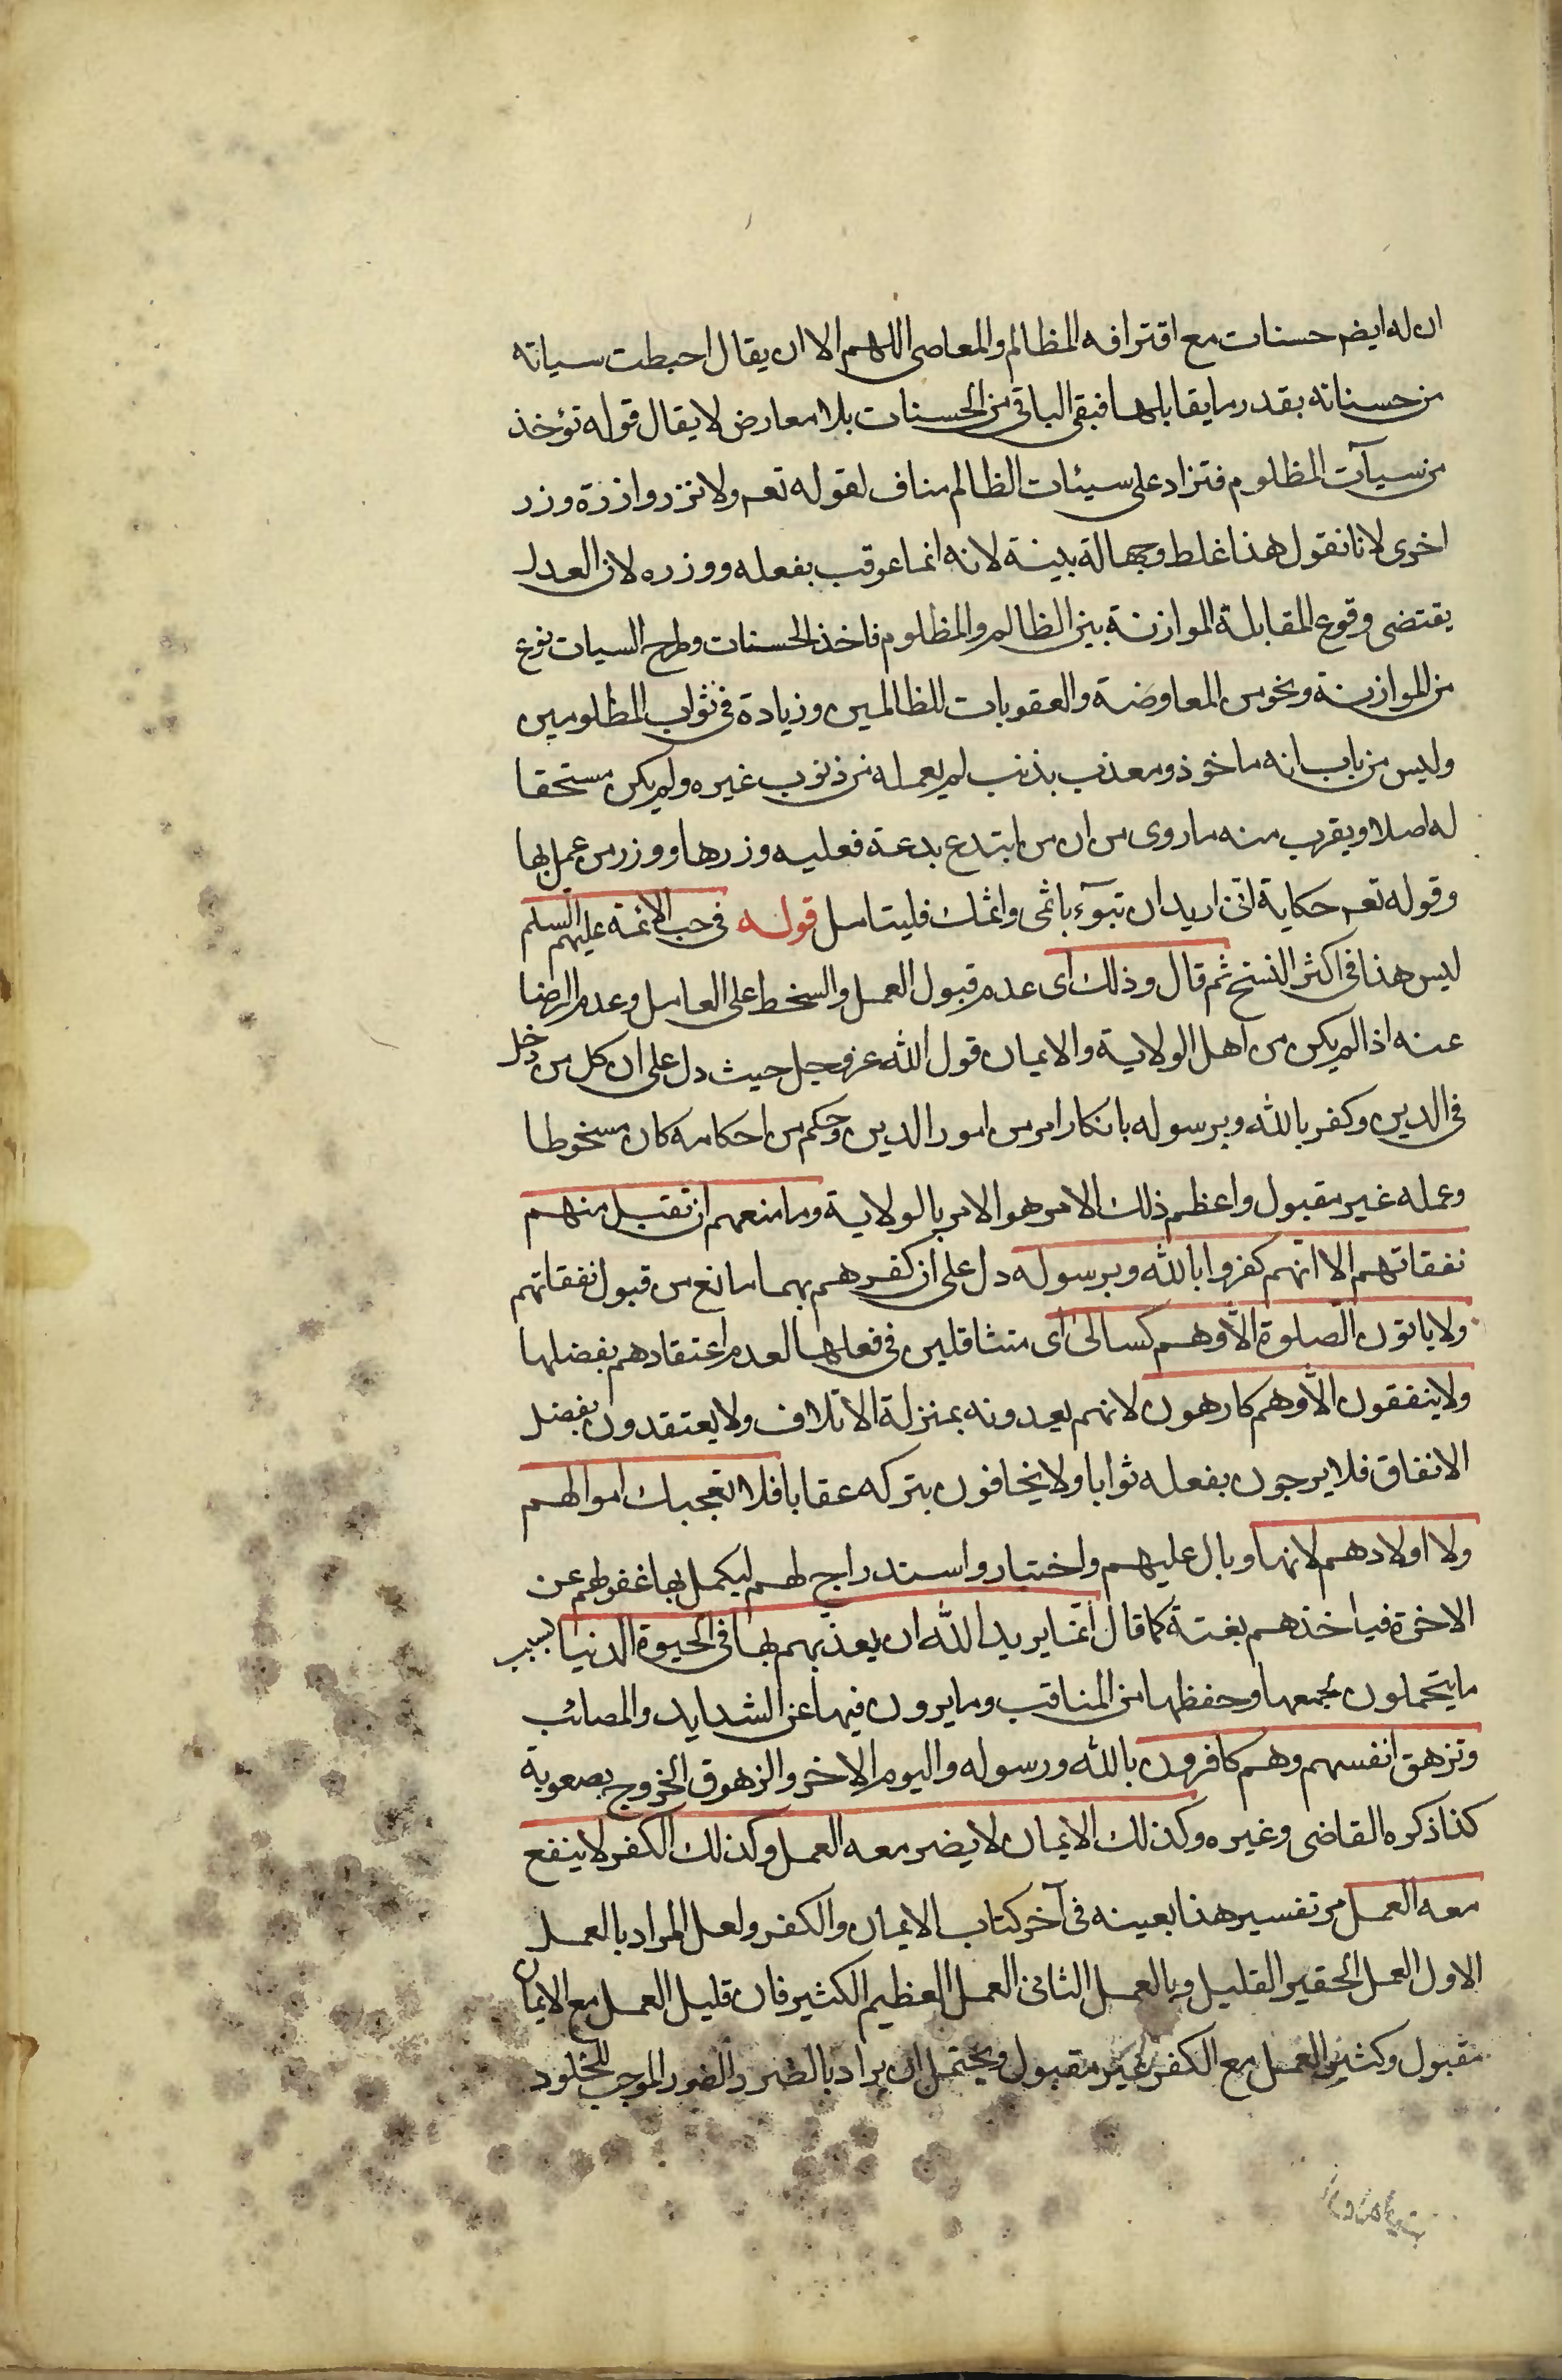 ان له ايضم حسنات مع اقترافه المظالم والمعاصى اللهم الا ان يقال احبطت سياته
من حسناته بقدر ما يقابلها فبقى الباقى من الحسنات بلا معارض لا يقال قوله تؤخذ
من سيآت المظلوم فتزاد على سيئات الظالم مناف لقوله تعم ولا تزر وازرة وزر
اخرى لانا نقول هذا غلط وجهالة بينة لانه انما عوقب بفعله ووزره لان العدل
يقتضى وقوع المقابلة الموازنة بين الظالم والمظلوم فاخذ الحسنات وطرح السيات نوع
من الموازنة ونحو من المعاوضة والعقوبات للظالمين وزيادة فى ثواب المظلومين
وليس من باب انه ماخوذ ومعذب بذنب لم يعمله من ذنوب غيره ولم يكن مستحقا
له اصلا ويقرب منه ما روى من ان من ابتدع بدعة فعليه وزرها ووزر من عمل بها
وقوله تعم حكاية انى اريد ان تبوٓء باثمى واثمك فليتامل قوله فى حب الائمة عليهم السلم
ليس هذا فى اكثر النسخ ثم قال وذلك اى عدم قبول العمل والسخط على العامل وعدم الرضا
عنه اذا لم يكن من اهل الولاية والايمان قول الله عز وجل حيث دل على ان كل من دخل
فى الدين وكفر بالله وبرسوله بانكار امر من امور الدين وحكم من احكامه كان مسخوطا
وعمله غير مقبول واعظم ذلك الامر هو الامر بالولاية وما منعهم ان تقبل منهم
نفقاتهم الا انهم كفروا بالله وبرسوله دل على ان كفرهم بهما مانع من قبول نفقاتهم
ولا ياتون الصلوة الّا وهم كسالىٰ اى متثاقلين فى فعلها لعدم اعتقادهم بفضلها
ولا ينفقون الّا وهم كارهون لانهم يعدونه بمنزلة الاتلاف ولا يعتقدون بفضل
الانفاق فلا يرجون بفعله ثوابا ولا يخافون بتركه عقابا فلا تعجبك اموالهم
ولا اولادهم لانها وبال عليهم واختبار واستدراج لهم ليكمل بها غفولهم عن
الاخرة فياخذهم بغتة كما قال انّما يريد الله ان يعذّبهم بها فى الحيوة الدنيا بسبب
ما يتحملون بجمعها وحفظها من المتاقب وما يرون فيها عن الشدايد والمصائب
وتزهق انفسهم وهم كافرون بالله ورسوله واليوم الاخر والزهوق الخروج بصعوبة
كذا ذكره القاضى وغيره وكذلك الايمان لا يضر معه العمل وكذلك الكفر لا ينفع
معه العمل مر تفسير هذا بعينه فى آخر كتاب الايمان والكفر ولعل المراد بالعمل
الاول العمل الحقير القليل وبالعمل الثانى العمل العظيم الكثير فان قليل العمل مع الايمان
مقبول وكثير العمل مع الكفر غير مقبول ويحتمل ان يراد بالضرر الضرر الموجب للخلود